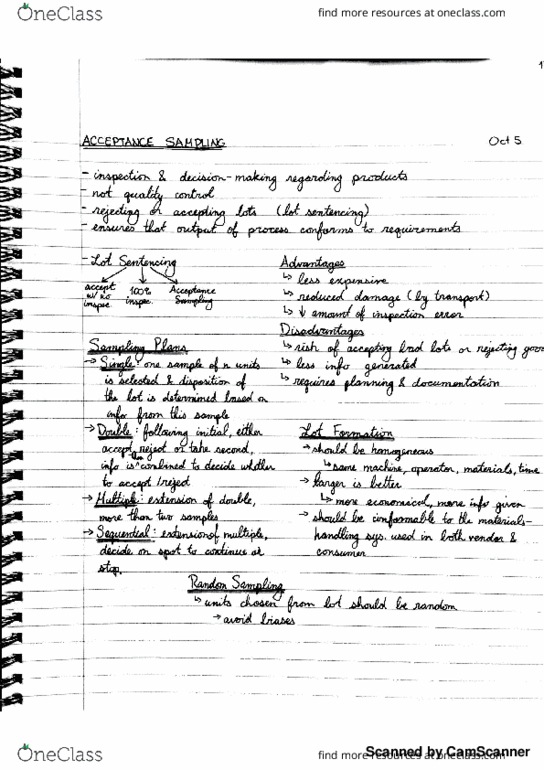 OneClass
find more resources at oneclass.com
1
ACCEPTANCE SAMPLING
Oct 5
- inspection & decision-making regarding products
- not quality control
- rejecting or accepting lots (lot sentencing)
- ensures that output of process conforms to requirements
- Lot Sentencing
accept w/ no inspec.
100% inspec.
Acceptance Sampling
Advantages
↳ less expensive
↳ reduced damage (by transport)
↳ ↓ amount of inspection error
Disadvantages
↳ risk of accepting bad lots or rejecting good
↳ less info generated
↳ requires planning & documentation
Sampling Plans
→ Single: one sample of n units
is selected & disposition of
the lot is determined based on
info from this sample
→ Double: following initial, either
accept, reject or take second,
info is then combined to decide whether
to accept/reject
→ Multiple: extension of double,
more than two samples
→ Sequential: extension of multiple,
decide on spot to continue or
stop.
Lot Formation
→ should be homogeneous
↳ same machine, operator, materials, time
→ larger is better
↳ more economical, more info given
→ should be conformable to the materials-
handling sys. used in both vendor &
consumer
Random Sampling
↳ units chosen from lot should be random
→ avoid biases
OneClass
find more resources at oneclass.com
Scanned by CamScanner